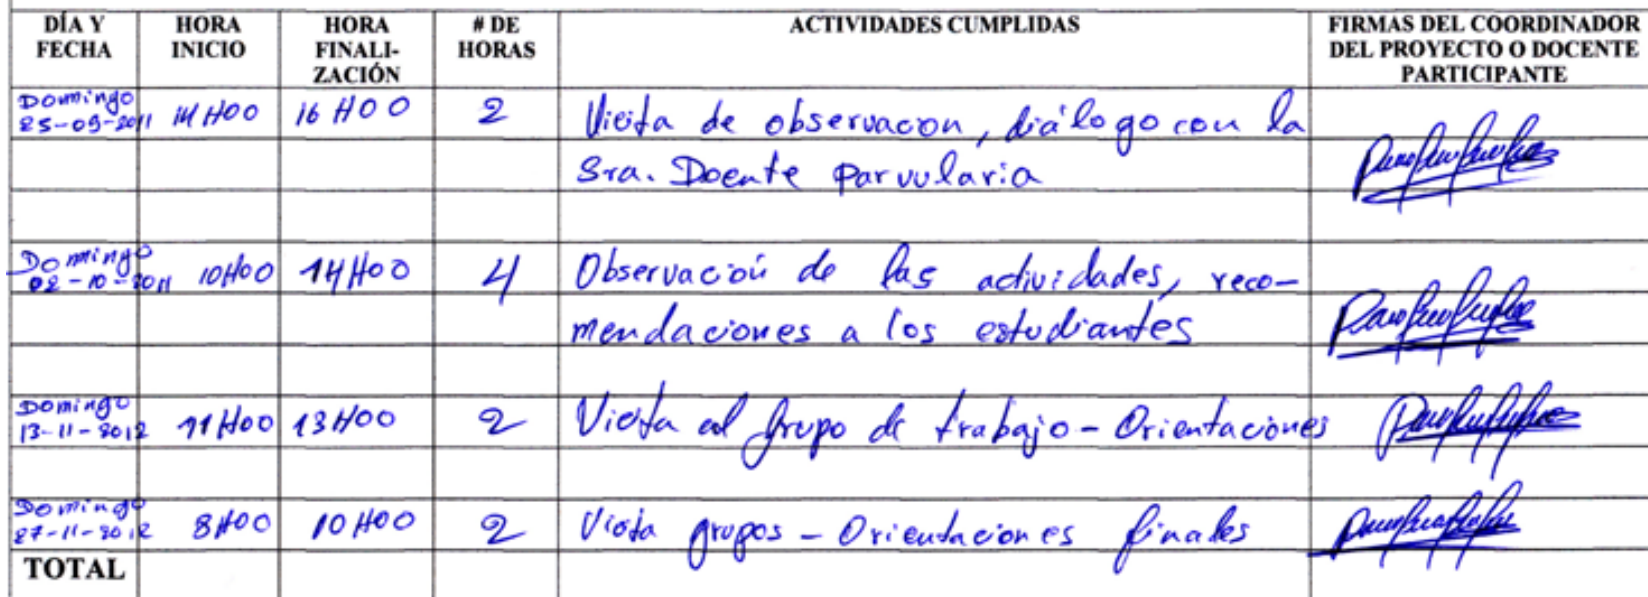 DÍA Y FECHA HORA INICIO HORA FINALI-ZACIÓN # DE HORAS ACTIVIDADES CUMPLIDAS FIRMAS DEL COORDINADOR DEL PROYECTO O DOCENTE PARTICIPANTE
Domingo 25-09-2011 14H00 16H00 2 Visita de observacion, diálogo con la
Sra. Doente Parvularia
Domingo 02-10-2011 10H00 14H00 4 Observación de las actividades, reco-
mendaciones a los estudiantes
Domingo 13-11-2012 11H00 13H00 2 Visita al grupo de trabajo - Orientaciones
Domingo 27-11-2012 8H00 10H00 2 Visita grupos - Orientaciones finales
TOTAL